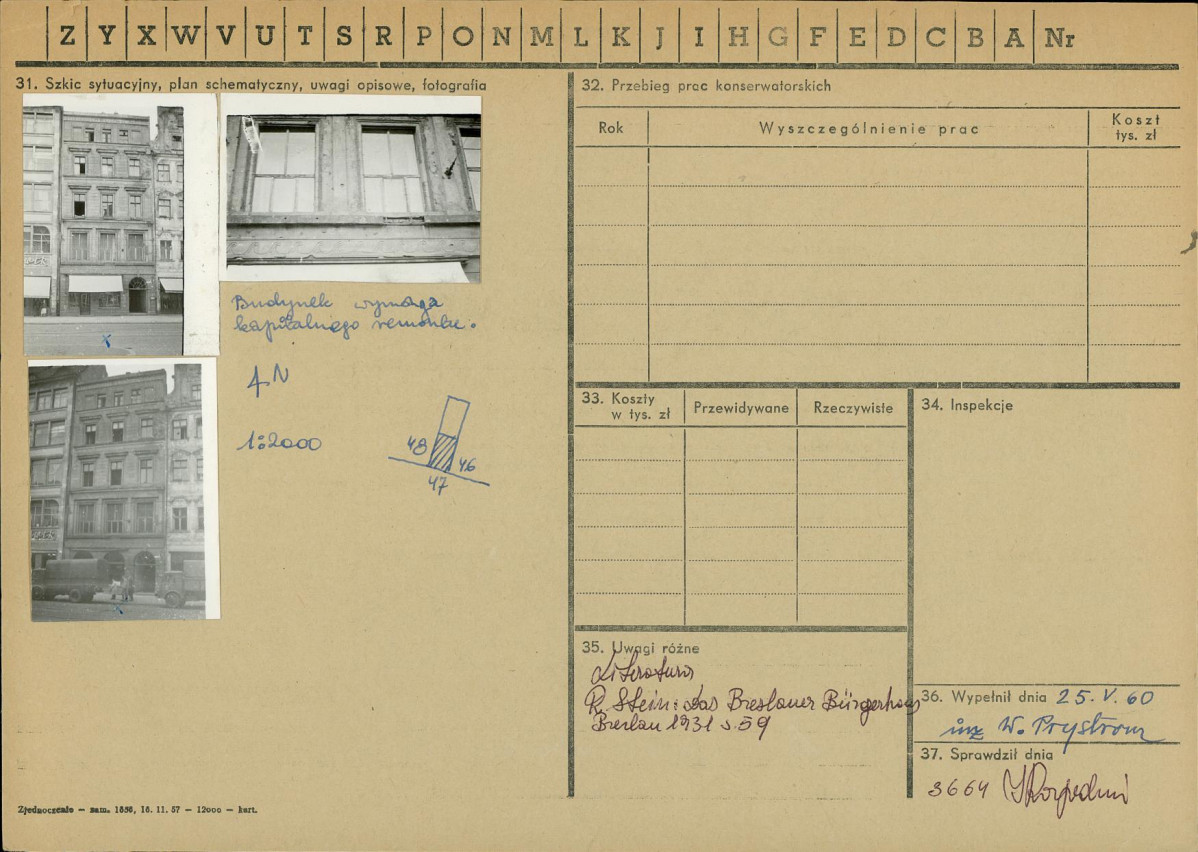 Z Y X W V U T S R P O N M L K J I H G F E D C B A Nr
31. Szkic sytuacyjny, plan schematyczny, uwagi opisowe, fotografia
Budynek wymaga
kapitalnego remontu.
N
1:2000
48
46
47
32. Przebieg prac konserwatorskich
Rok
Wyszczególnienie prac
Koszt
tys. zł
33. Koszty
w tys. zł
Przewidywane
Rzeczywiste
34. Inspekcje
35. Uwagi różne
Literatura
R. Stein: Das Breslauer Bürgerhaus
Breslau 1931 s. 59
36. Wypełnił dnia 25. V. 60
inż W. Prystrom
37. Sprawdził dnia
3664
Zjednoczenie — zam. 1856, 16. 11. 57 — 12000 — kart.